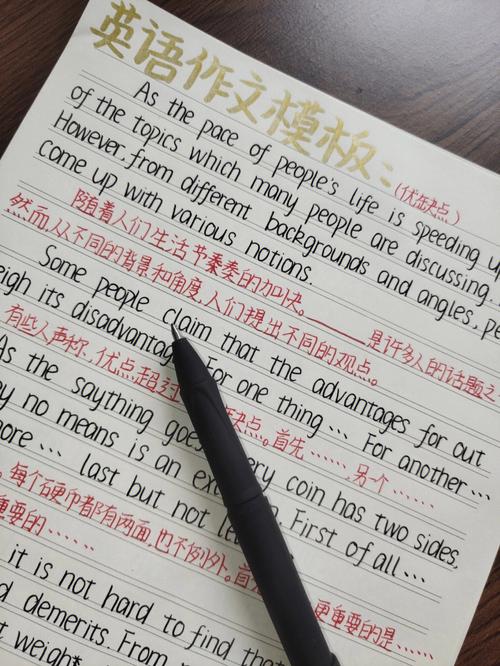 英语作文模板:(优缺点)
As the pace of people's life is speeding
of the topics which many people are discussing.
However, from different backgrounds and angles,
come up with various notions.
随着人们生活节奏奏的加快。______是许多人的话题之
然而,从不同的背景和角度,人们提出不同的观点。
Some people claim that the advantages for out
its disadvantag For one thing... For another...
有些人声称,优点超过 缺点。首先......,另个......
As the saything goes coin has two sides.
no means is an First of all...
last but not
每个石更巾都有两面,也不例外。 更重要的是......
重要的......
it is not hard to find that
demerits. From
weigh*